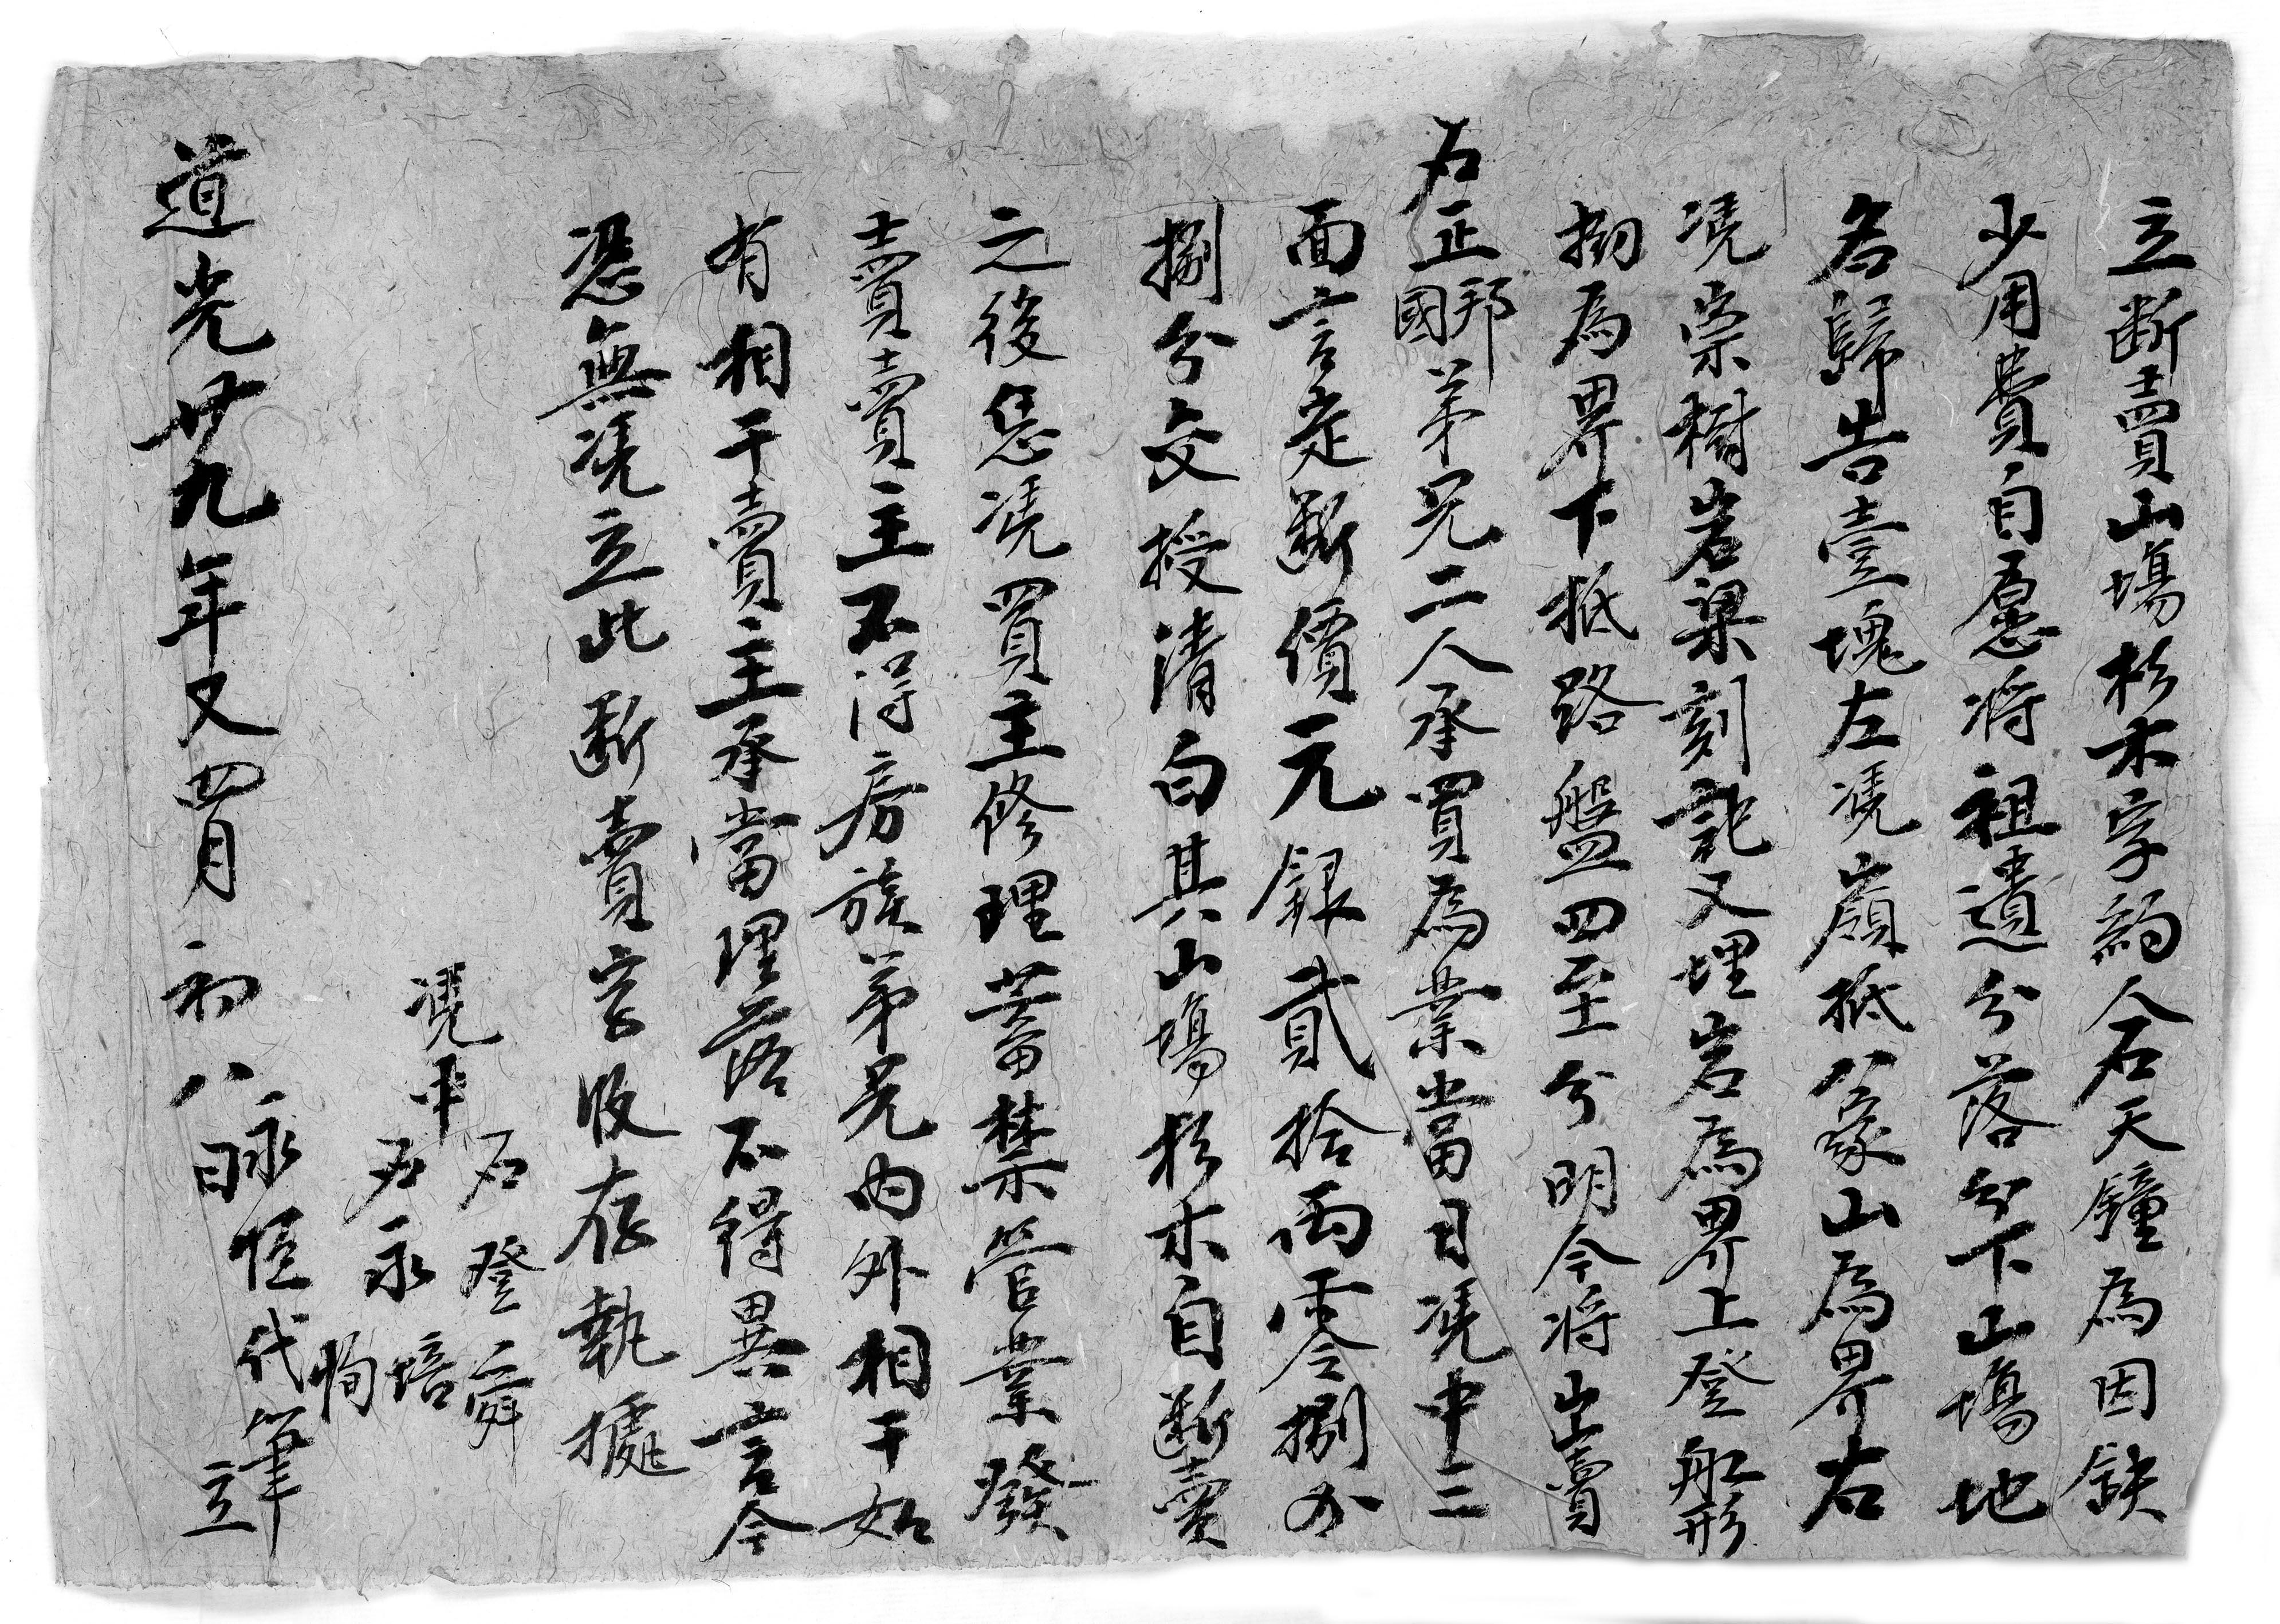 立断賣山塲杉木字約人石天鐘為因缺
少用費自愿将祖遺分落分下山塲地
名歸告壹塊左凴嶺抵公象山為界右
凴崇樹岩梁刻記又埋岩為界上登船形
坳為界下抵路盤四至分明今将出賣
石正邦國弟兄二人承買為業當日凴中三
面言定断價元銀貳拾両零捌分
捌分交授清白其山塲杉木自断賣
之後恁凴買主修理蓄禁管業發
賣賣主不得房族弟兄内外相干如
有相干賣主承當理落不得異言今
恐無凴立此断賣字收存執據
石登舜
凴中
石永培
恂
永恒代筆
道光廿九年又四月初八日立